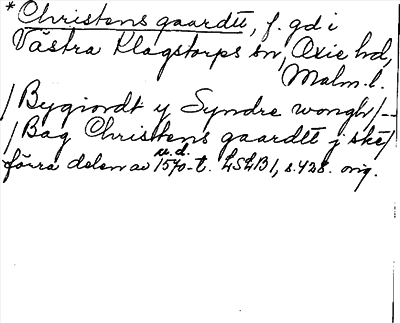 * Christens gaardtt, f. gd i
Västra Klagstorps sn, Oxie hd,
Malm. l.
/ Bygiordt y Syndre wongh / --
/ Bag Christens gaardtt j ske /
u. d.
förra delen av 1570-t. LSLB 1, s. 428. orig.